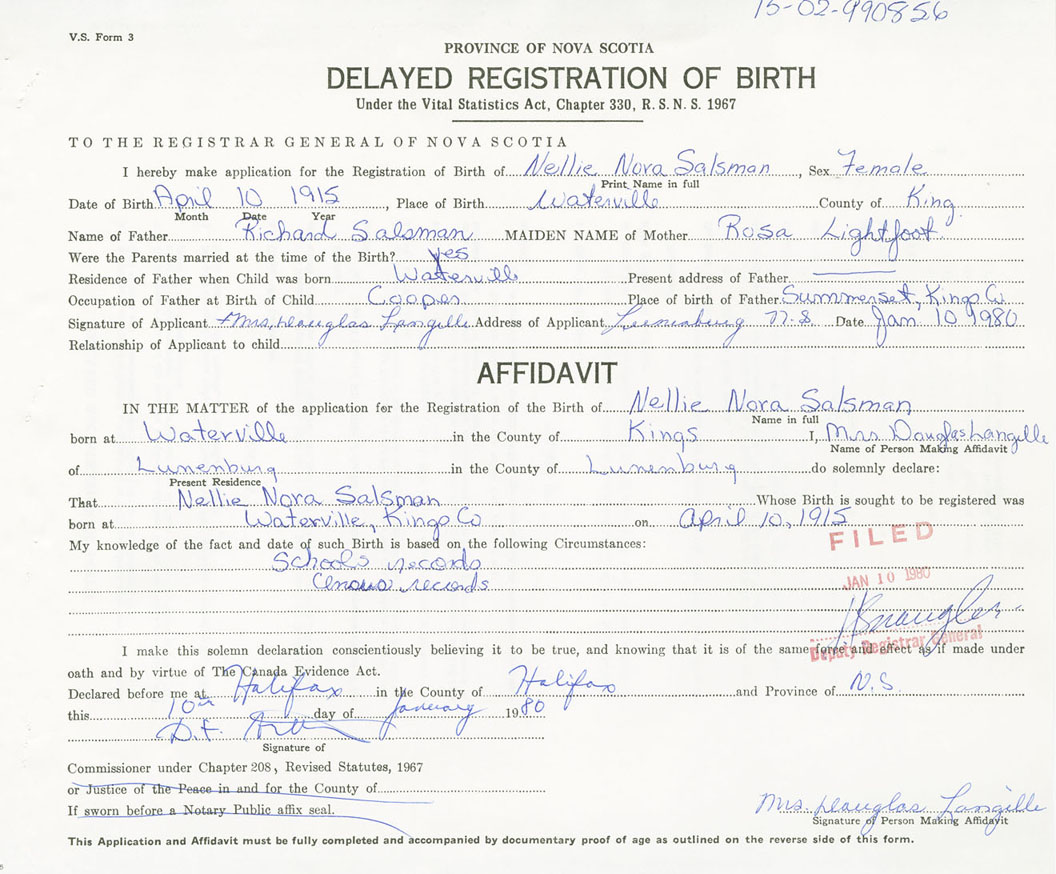 15-02-990856
V.S. Form 3
PROVINCE OF NOVA SCOTIA
DELAYED REGISTRATION OF BIRTH
Under the Vital Statistics Act, Chapter 330, R. S. N. S. 1967
TO THE REGISTRAR GENERAL OF NOVA SCOTIA
I hereby make application for the Registration of Birth of Nellie Nora Salsman, Sex Female
Print Name in full
Date of Birth April 10 1915, Place of Birth Waterville County of King
Month Date Year
Name of Father Richard Salsman MAIDEN NAME of Mother Rosa Lightfoot
Were the Parents married at the time of the Birth? yes
Residence of Father when Child was born Waterville Present address of Father
Occupation of Father at Birth of Child Cooper Place of birth of Father Summerset, Kings Co
Signature of Applicant Mrs. Douglas Langille Address of Applicant Lunenburg N.S. Date Jan 10 1980
Relationship of Applicant to child
AFFIDAVIT
IN THE MATTER of the application for the Registration of the Birth of Nellie Nora Salsman
Name in full
born at Waterville in the County of Kings I, Mrs Douglas Langille
Name of Person Making Affidavit
of Lunenburg in the County of Lunenburg do solemnly declare:
Present Residence
That Nellie Nora Salsman Whose Birth is sought to be registered was
born at Waterville, Kings Co on April 10, 1915
My knowledge of the fact and date of such Birth is based on the following Circumstances:
FILED
Schools records
JAN 10 1980
Census records
Deputy Registrar General
I make this solemn declaration conscientiously believing it to be true, and knowing that it is of the same force and effect as if made under
oath and by virtue of The Canada Evidence Act.
Declared before me at Halifax in the County of Halifax and Province of N.S
this 10th day of January 1980
D.F.
Signature of
Commissioner under Chapter 208, Revised Statutes, 1967
or Justice of the Peace in and for the County of
If sworn before a Notary Public affix seal.
Mrs. Douglas Langille
Signature of Person Making Affidavit
This Application and Affidavit must be fully completed and accompanied by documentary proof of age as outlined on the reverse side of this form.